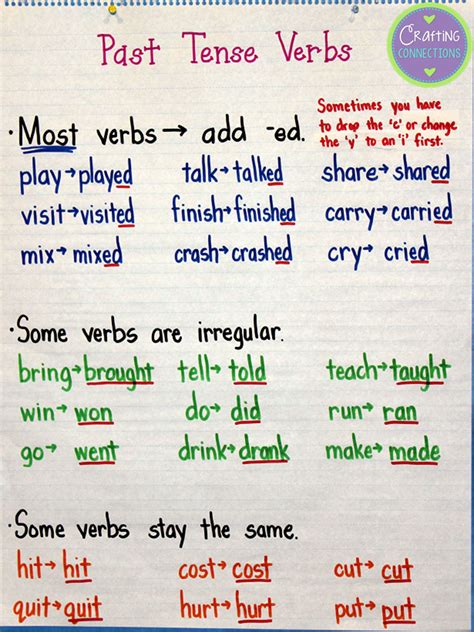 Crafting
CONNECTIONS
Past Tense Verbs
Sometimes you have
to drop the 'e' or change
the 'y' to an 'i' first.
·Most verbs→ add -ed.
play→played talk→talked share→shared
visit→visited finish→finished carry→carried
mix→mixed crash→crashed cry→cried
·Some verbs are irregular.
bring→brought tell→told teach→taught
win→won do→did run→ran
go→went drink→drank make→made
·Some verbs stay the same.
hit→hit cost→cost cut→cut
quit→quit hurt→hurt put→put